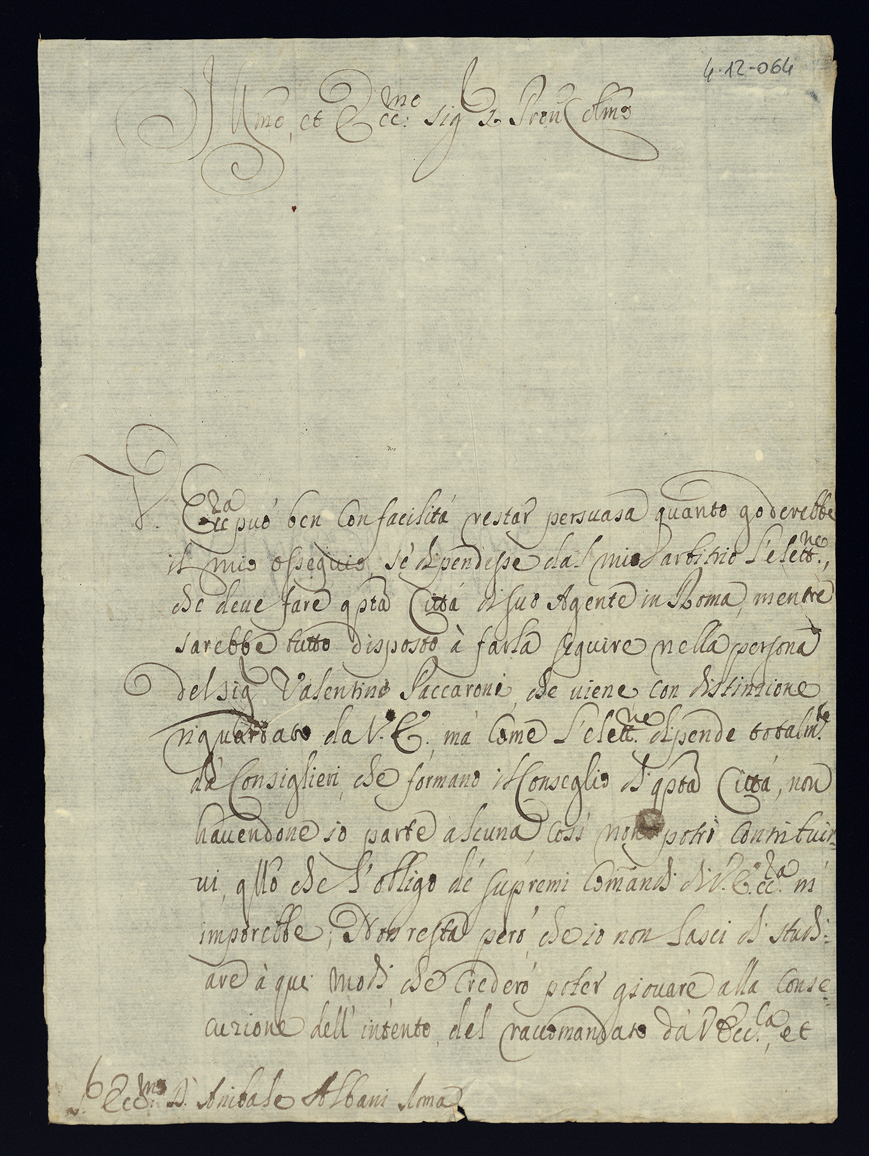 4-12-064
Ill.mo, et Ecc.mo Sig.r Pron Colmo
V. Ecc.za può ben con facilità restar persuasa quanto goderebbe
il mio ossequio se dipendesse dal mio arbitrio l'elett.ne,
che deve fare q̃sta Città di suo Agente in Roma, mentre
sarebbe tutto disposto à farla seguire nella persona
del Sig.r Valentino Paccaroni, che viene con distinzione
riguardato da V. E. mà come l'elett.ne dipende totalm.te
dà Consiglieri, che formano il Conseglio di q̃sta Città, non
havendone io parte alcuna così non potrò contribuir-
vi q̃llo che l'obligo de' supremi Comandi di V. Ecc.za m'
imporebbe; Non resta però, che io non lasci di studi-
are à quei modi che crederò poter giovare alla conse-
cuzione dell'intento del raccomandato dà V Ecc.za, et
Ecc.mo D. Anibale Albani Roma